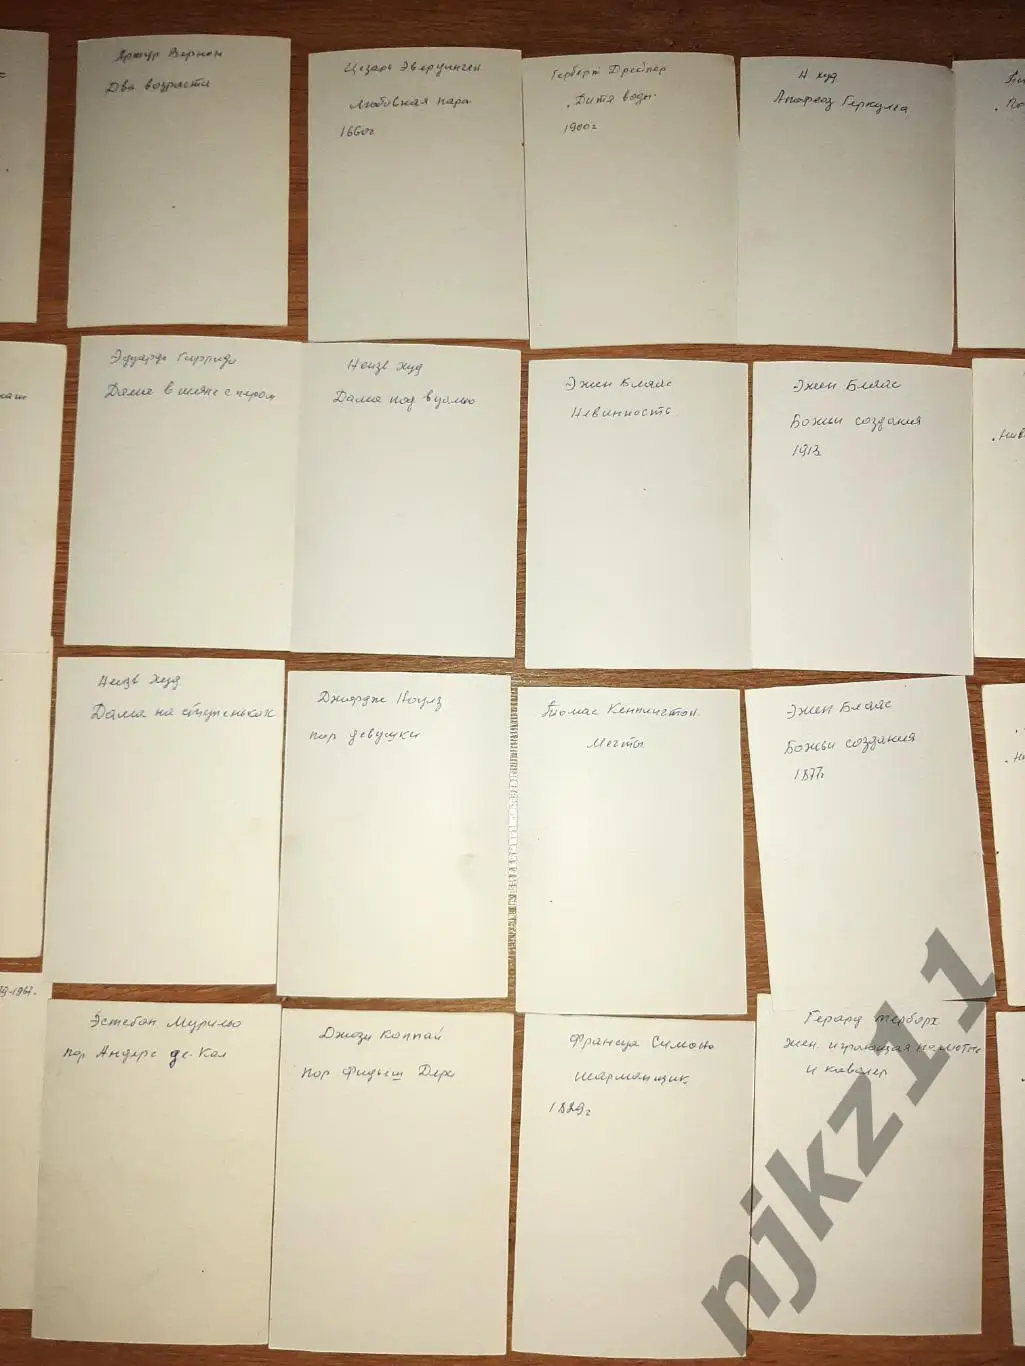 Артур Вернон
Два возраста
Цезарь Эвердинген
Любовная пара
1660г
Герберт Дрейпер
"Дитя воды"
1900г
Н худ
Апофеоз Геркулеса
Эдуардо Гарридо
Дама в шляпе с пером
Неизв худ
Дама под вуалью
Эжен Блаас
Невинность
Эжен Блаас
Божьи создания
1913
Неизв худ
Дама на ступеньках
Джордж Ноулз
пор девушки
Томас Кеннингтон
Мечты
Эжен Блаас
Божьи создания
1877г
9-1967г
Эстебан Мурильо
пор Андрс де-Кал
Джози Коппай
пор
Франсуа Симоно
шарманщик
1829г
Герард Терборх
жен. играющая на лютне
и кавалер
njkz11